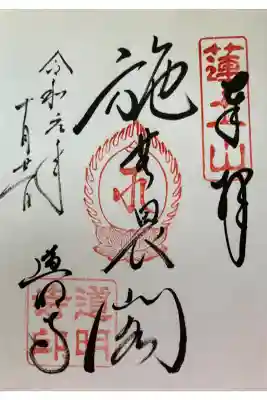 蓮土山
奉拝
施無畏閣
令和元年
十月
道明寺
道明
寺印